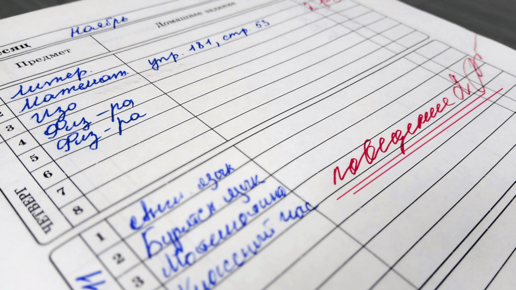 МЕСЯЦ ноябрь
Предмет Домашнее задание
Литер.
2 Математ. упр. 181, стр. 53
3 Изо
4 Физ-ра
5 Физ-ра
6
7
8
ЧЕТВЕРГ
поведение
1 Англ. язык
2 Бурятск. язык
3 Математика
Классный час